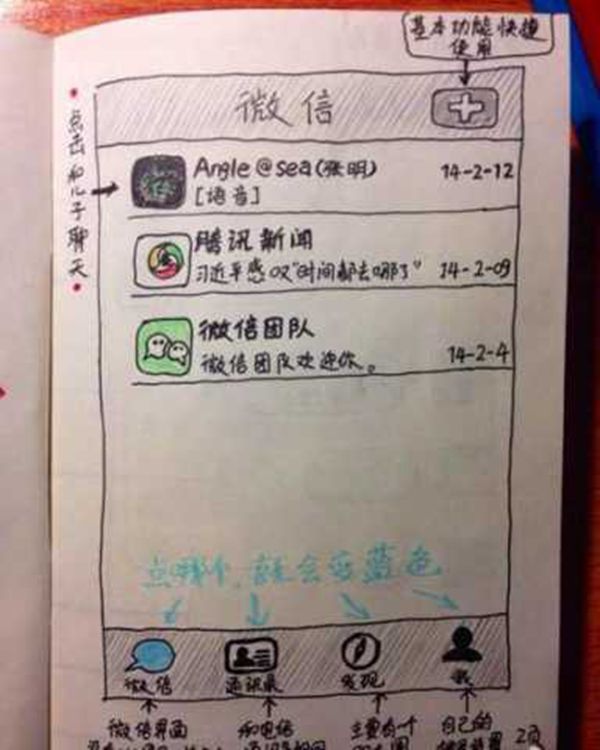 基本功能快捷
使用
微信
点击和儿子聊天
Angle@sea(张明)
14-2-12
[语音]
腾讯新闻
习近平感叹"时间都去哪了" 14-2-09
微信团队
微信团队欢迎你。 14-2-4
点哪个,就会变蓝色
微信 通讯录 发现 我
微信界面 和电信 主要有一个 自己的
2项